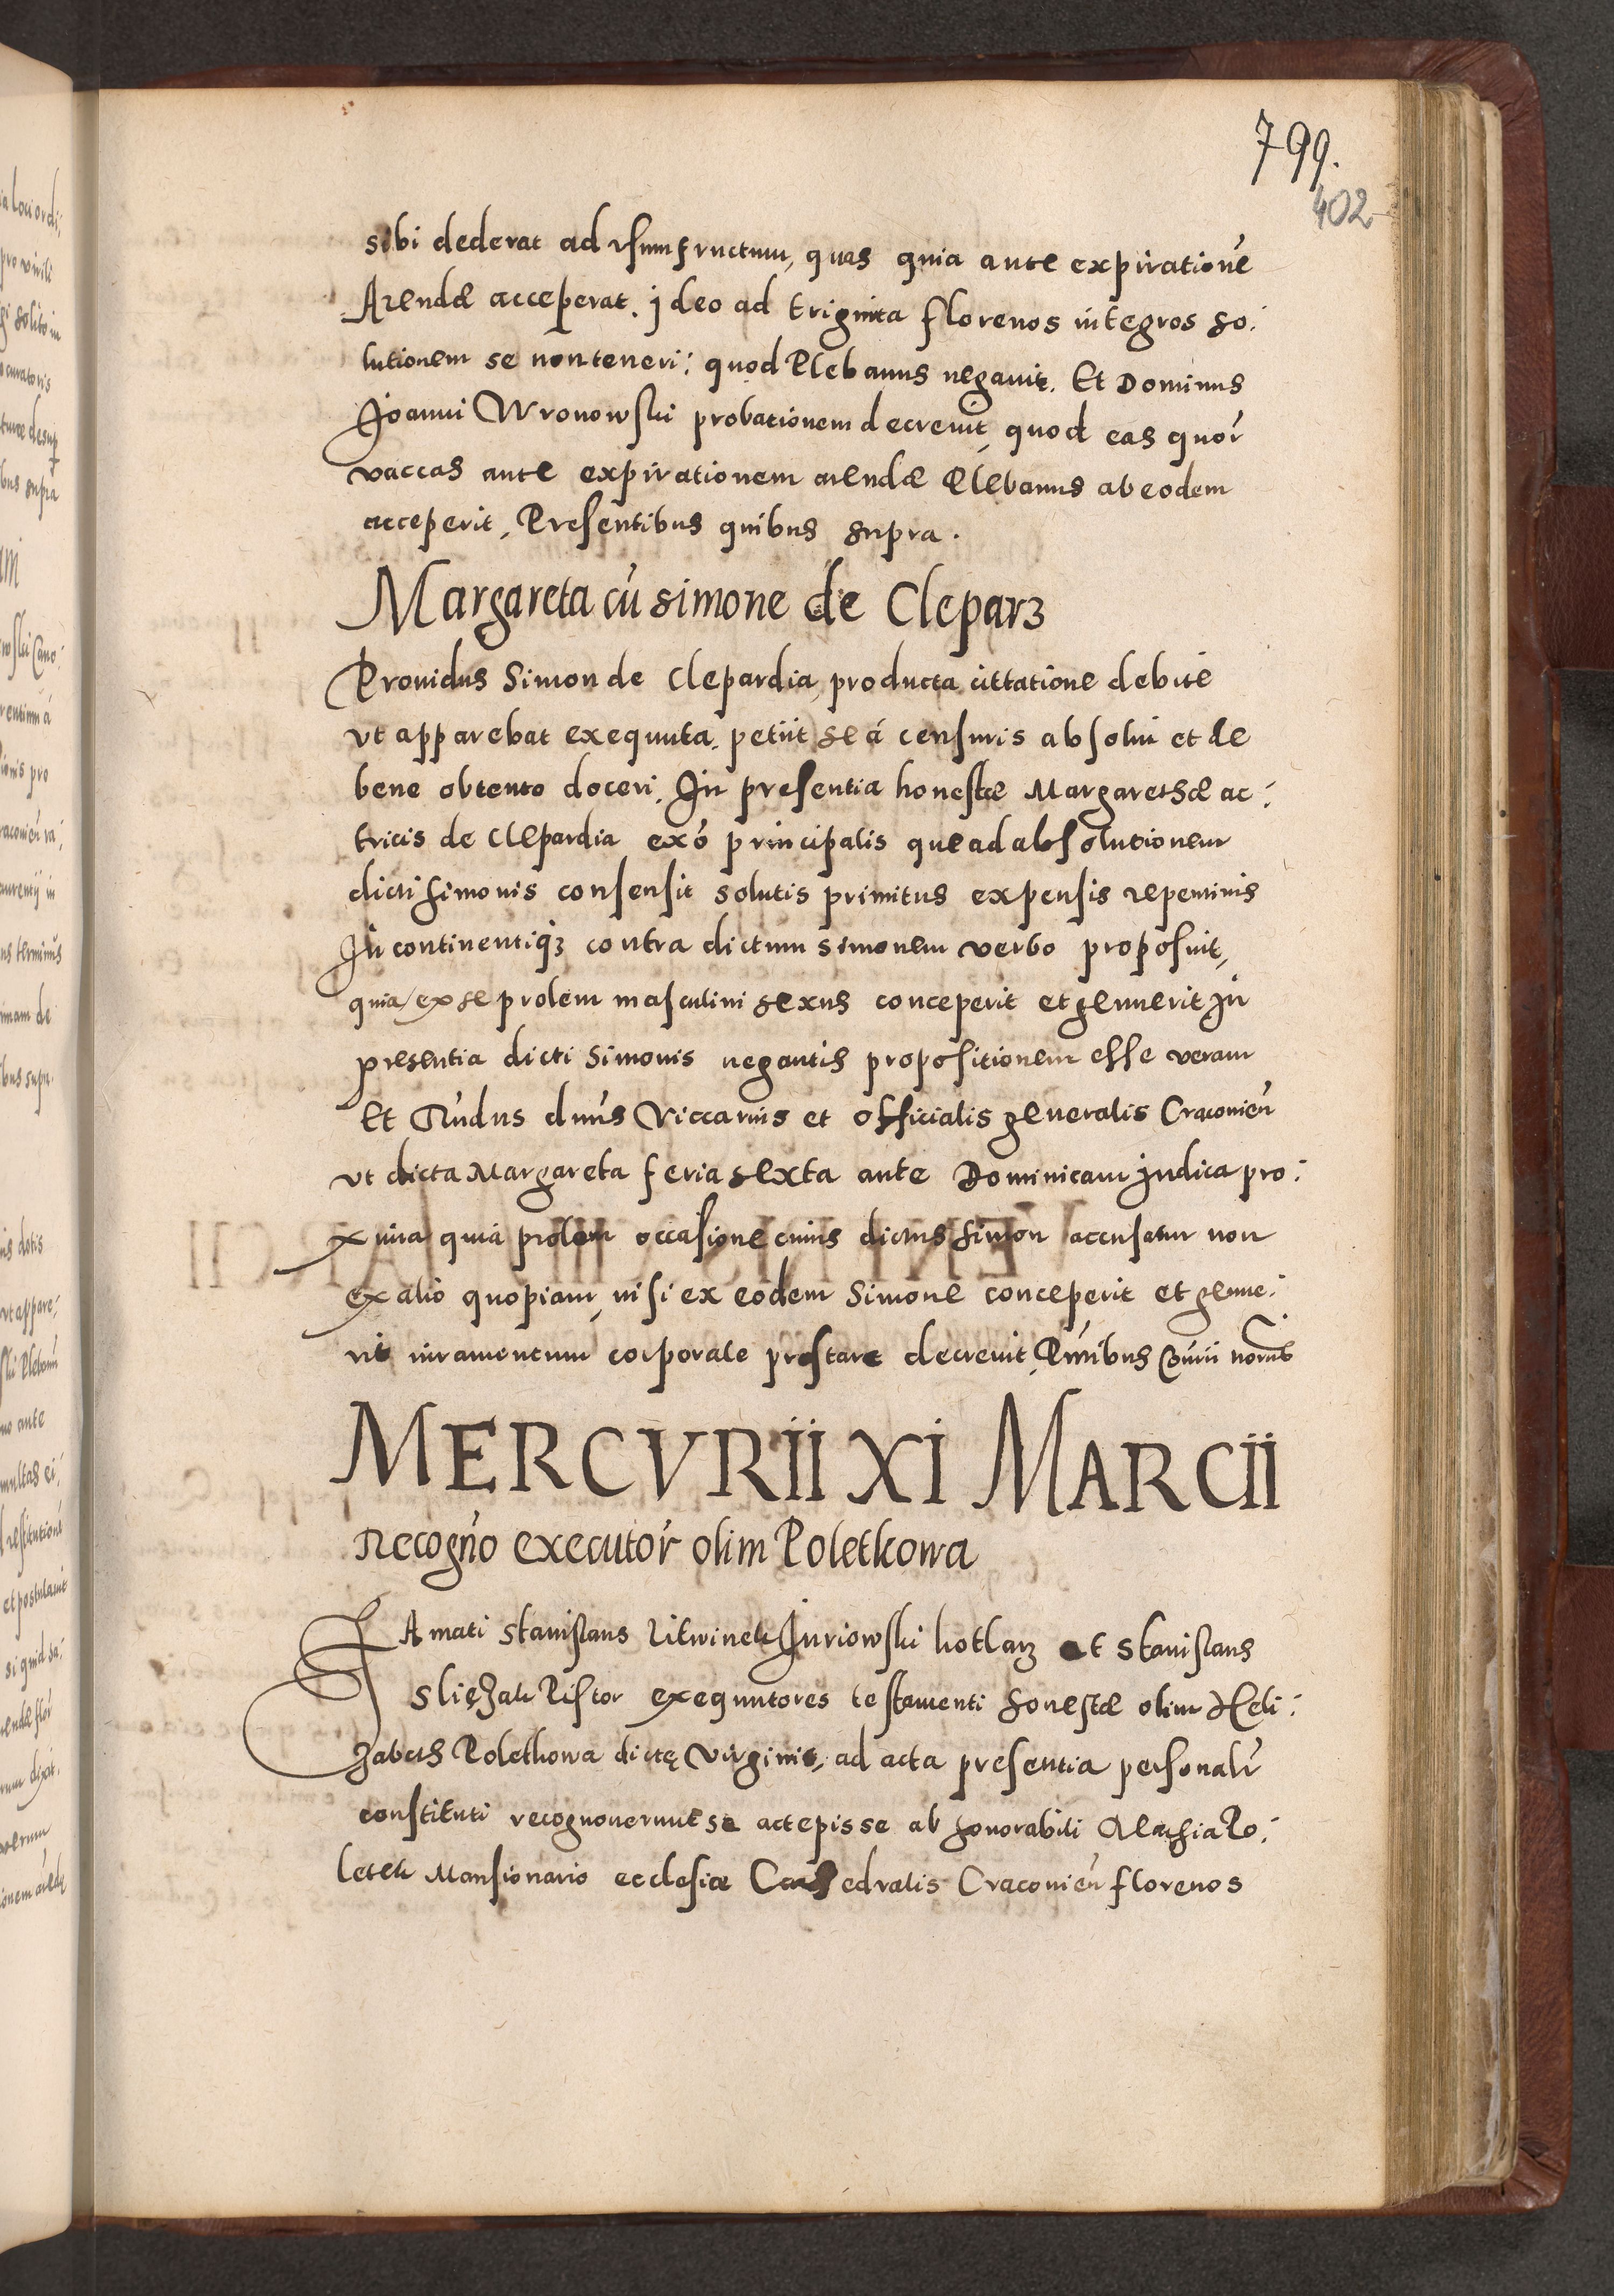 799.
402
sibi dederat ad vsumfructum, quas quia ante expirationē
Arendæ acceperat. Ideo ad triginta florenos integros so:
lutionem se non teneri: quod Plebanus negauit. Et Dominus
Joanni Wronowski probationem decreuit, quod eas quor
vaccas ante expirationem arendæ Plebanus ab eodem
acceperit, Presentibus quibus supra.
Margareta cū simone de Cleparz
Prouidus Simon de Clepardia, producta cittatione debite
vt apparebat exequuta, petiit se á censuris absolui et de
bene obtento doceri. In presentia honestæ Margarethæ ac:
tricis de Clepardia exó principalis que ad absolutionem
dicti simonis consensit solutis primitus expensis repentinis
In continentiq3 contra dictum simonem verbo proposuit,
quia ex se prolem masculini sexus conceperit et genuerit In
presentia dicti Simonis negantis propositionem esse veram
Et Rńdus dnūs Viccarius et officialis generalis Cracouień
vt dicta Margareta feria sexta ante Dominicam Judica pro:
xima quia prolem occasione cuius dictus simon accusatur non
ex alio quopiam, nisi ex eodem Simone conceperit et genue:
rit iuramentum corporale prestare decreuit, Pńtibus
MERCVRII XI MARCII
Recogńo executoŕ olim Poletkowa
Famati Stanislaus Litwinek Juriowski kotlarz et Stanislaus
Slięzak Pistor exequutores testamenti honestæ olim Heli:
zabeth Poletkowa dictę Virginis, ad acta presentia personalŕ
constituti recognouerunt se accepisse ab honorabili Mathia Po:
letek Mansionario ecclesiæ Cathedralis Cracouień florenos